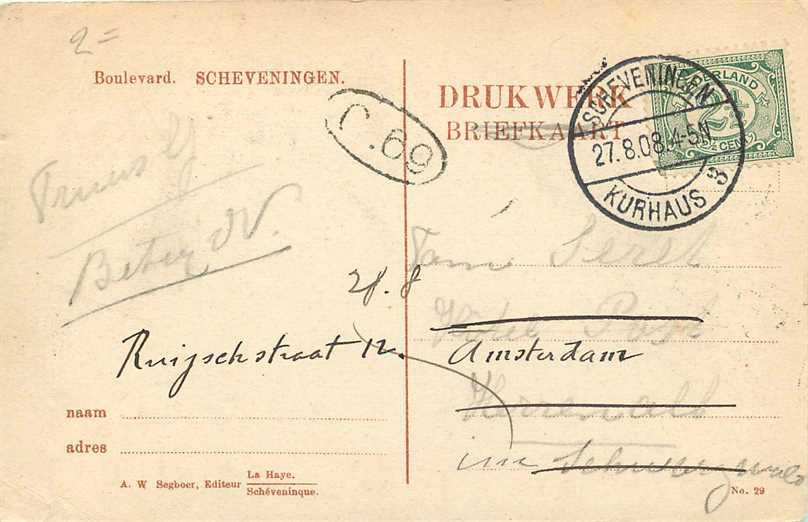 2=
Boulevard. SCHEVENINGEN.
DRUKWERK
BRIEFKAART
NEDERLAND
2½ CENT
SCHEVENINGEN
27.8.08.4-5N
KURHAUS 3
C.69
Truus
Betsy
Fam
28.8
Hotel Post
Ruijschstraat 12.
Amsterdam
Herrenalb
naam
im Schwarzwald
adres
A. W Segboer, Editeur La Haye.
Schéveninque.
No. 29